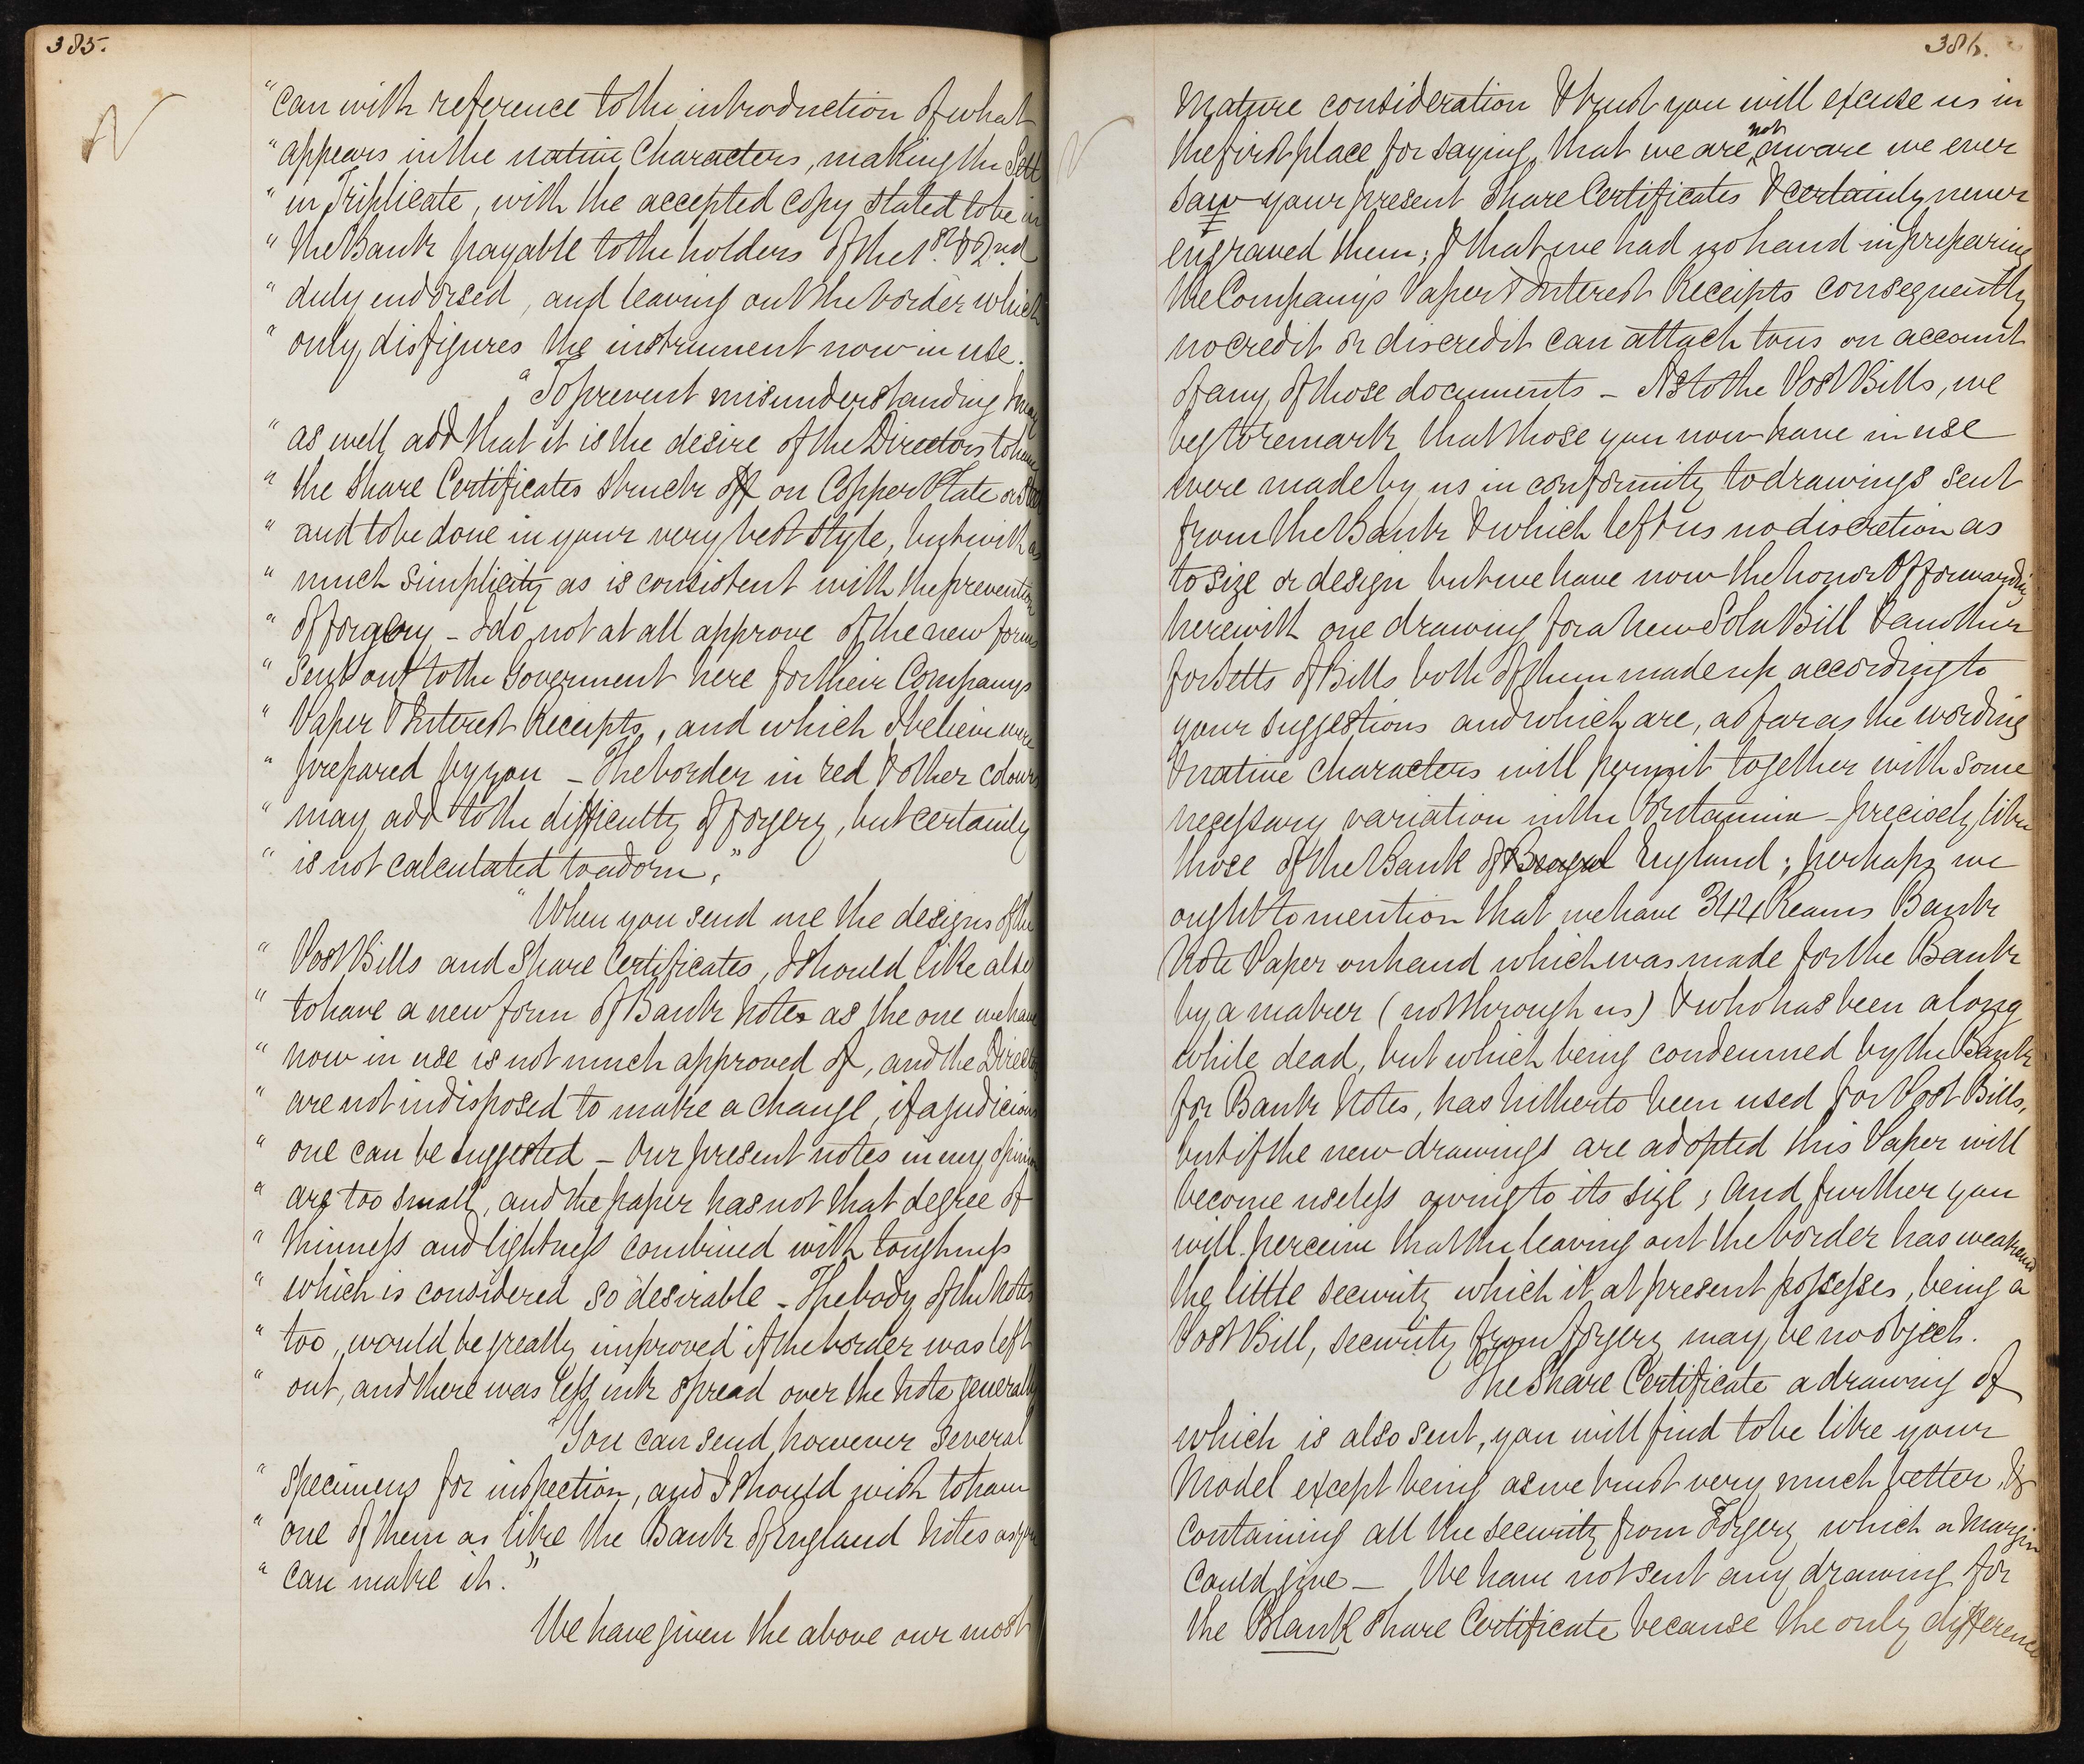 385.
"can with reference to the introduction of what
"appears in the native Characters, making the Sett
"in Triplicate, with the accepted copy stated to be in
"the Bank payable to the holders of the 1st. & 2nd
"duly endorsed, and leaving out the border which
"only disfigures the instrument now in use.
"To prevent misunderstanding I may
"as well add that it is the desire of the Directors to have
"the Share Certificates struck off on Copper Plate or
"and to be done in your very best style, but with as
"much simplicity as is consistent with the prevention
"of forgery - I do not at all approve of the new forms
"sent out to the Government here for their Companys
"Paper & Interest Receipts, and which I believe were
"prepared by you - The border in red & other colours
"may add to the difficulty of forgery, but certainly
"is not calculated to adorn."
"When you send me the designs of the
"Post Bills and Share Certificates, I should like also
"to have a new form of Bank Notes as the one we have
"now in use is not much approved of, and the Directors
"are not indisposed to make a change, if a judicious
"one can be suggested - Our present notes in my opinion
"are too small, and the paper has not that degree of
"thinness and lightness combined with toughness
"which is considered so desirable - The body of the Notes
"too, would be greatly improved if the border was left
"out, and there was less ink spread over the Note generally
"You can send however several
"specimens for inspection, and I should wish to have
"one of them as like the Bank of England Notes as you
"can make it."
We have given the above our most
386.
mature consideration & trust you will excuse us in
the first place for saying, that we are not aware we ever
saw your present Share Certificates & certainly never
engraved them; & that we had no hand in preparing
the Company's Paper & Interest Receipts consequently
no credit or discredit can attach to us on account
of any of those documents - As to the Post Bills, we
beg to remark that those you now have in use
were made by us in conformity to drawings sent
from the Bank & which left us no discretion as
to size or design but we have now the honor of forwarding
herewith one drawing for a new Sola Bill & another
for Setts of Bills both of them made up according to
your suggestions and which are, as far as the wording
& native characters will permit together with some
necessary variation in the Britannia - precisely like
those of the Bank of Bengal England; perhaps we
ought to mention that we have 344 Reams Bank
Note Paper on hand which was made for the Bank
by a maker (not through us) & who has been a long
while dead, but which being condemned by the Bank
for Bank Notes, has hitherto been used for Post Bills,
but if the new drawings are adopted this Paper will
become useless owing to its size; and further you
will perceive that the leaving out the border has weakened
the little security which it at present possesses, being a
Post Bill, security from forgery may be no object.
The Share Certificate a drawing of
which is also sent, you will find to be like your
Model except being as we trust very much better, &
containing all the security from Forgery which a Margin
could give - We have not sent any drawing for
the Blank Share Certificate because the only difference